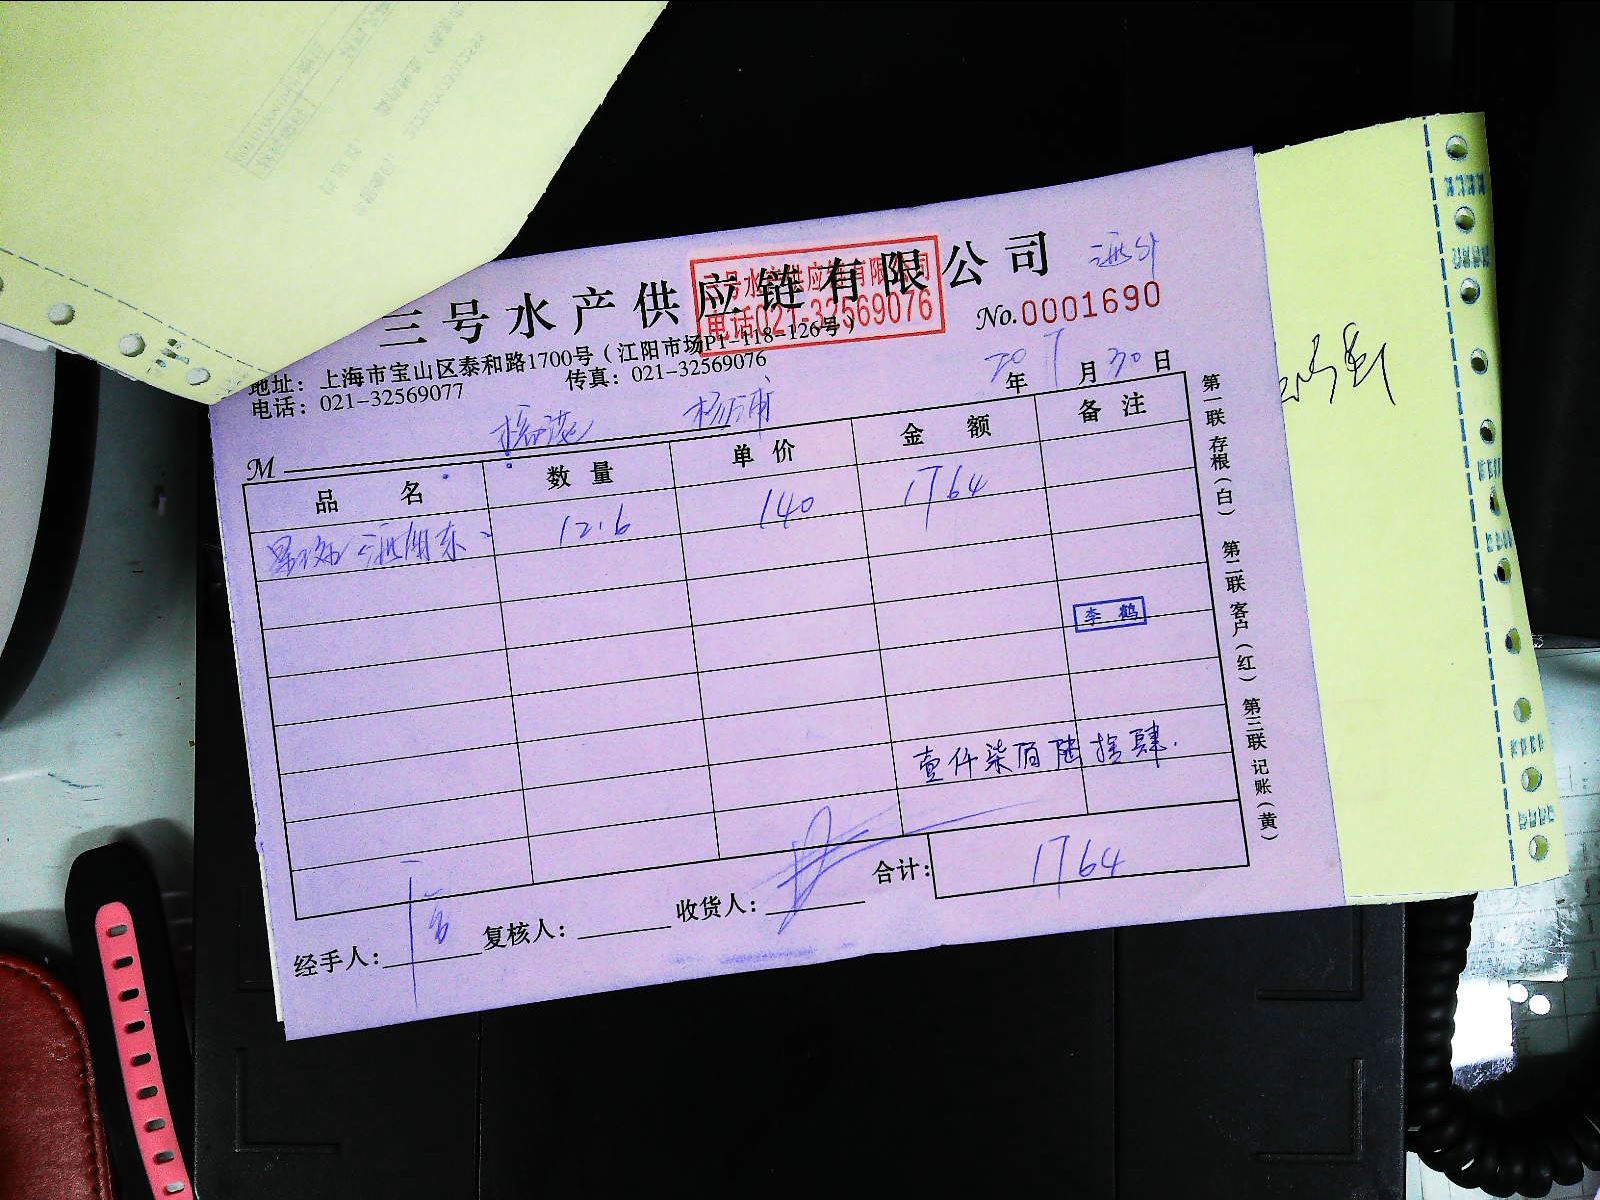 三号水产供应链有限公司
三号水产供应链有限公司
电话021-32569076
No.0001690
地址：上海市宝山区泰和路1700号（江阳市场P1-118-126号）
电话：021-32569077 传真：021-32569076
20年7月30日
杨浦
M
品名 数量 单价 金额 备注
12.6 140 1764
李鹤
壹仟柒佰陆拾肆.
合计： 1764
经手人： 复核人： 收货人：
第一联 存根（白） 第二联 客户（红） 第三联 记账（黄）